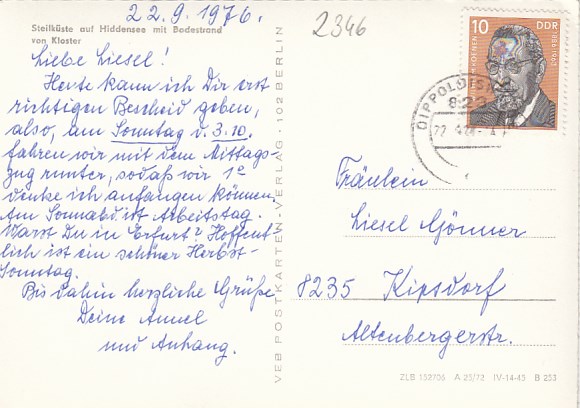 22.9.1976.
Steilküste auf Hiddensee mit Badestrand
von Kloster
Liebe Liesel!
Heute kann ich Dir erst
richtigen Bescheid geben,
also, am Sonntag d. 3.10.
fahren wir mit dem Mittags-
zug runter, sodaß wir 1°
denke ich anfangen können.
Am Sonnabd. ist Arbeitstag.
Warst Du in Erfurt? Hoffent-
lich ist ein schöner Herbst-
Sonntag.
Bis dahin herzliche Grüße
Deine Annel
und Anhang.
VEB POSTKARTEN-VERLAG · 102 BERLIN
2346
10
DDR
1886-1963
823
Fräulein
Liesel Gönner
8235 Kipsdorf
Altenbergerstr.
ZLB 152706 A 25/72 IV-14-45 B 253